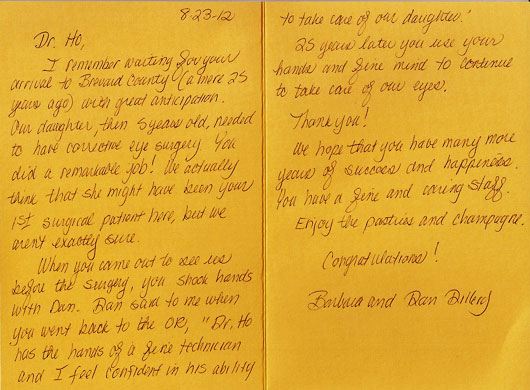 8-23-12
Dr. Ho,
I remember waiting for your
arrival to Brevard County (a mere 25
years ago) with great anticipation.
Our daughter, then 5 years old, needed
to have corrective eye surgery. You
did a remarkable job! We actually
think that she might have been your
1st surgical patient here, but we
aren't exactly sure.
When you came out to see us
before the surgery, you shook hands
with Dan. Dan said to me when
you went back to the OR, "Dr. Ho
has the hands of a fine technician
and I feel confident in his ability
to take care of our daughter."
25 years later you use your
hands and fine mind to continue
to take care of our eyes.
Thank you!
We hope that you have many more
years of success and happiness
You have a fine and caring staff.
Enjoy the pastries and champagne.
Congratulations!
Barbara and Dan